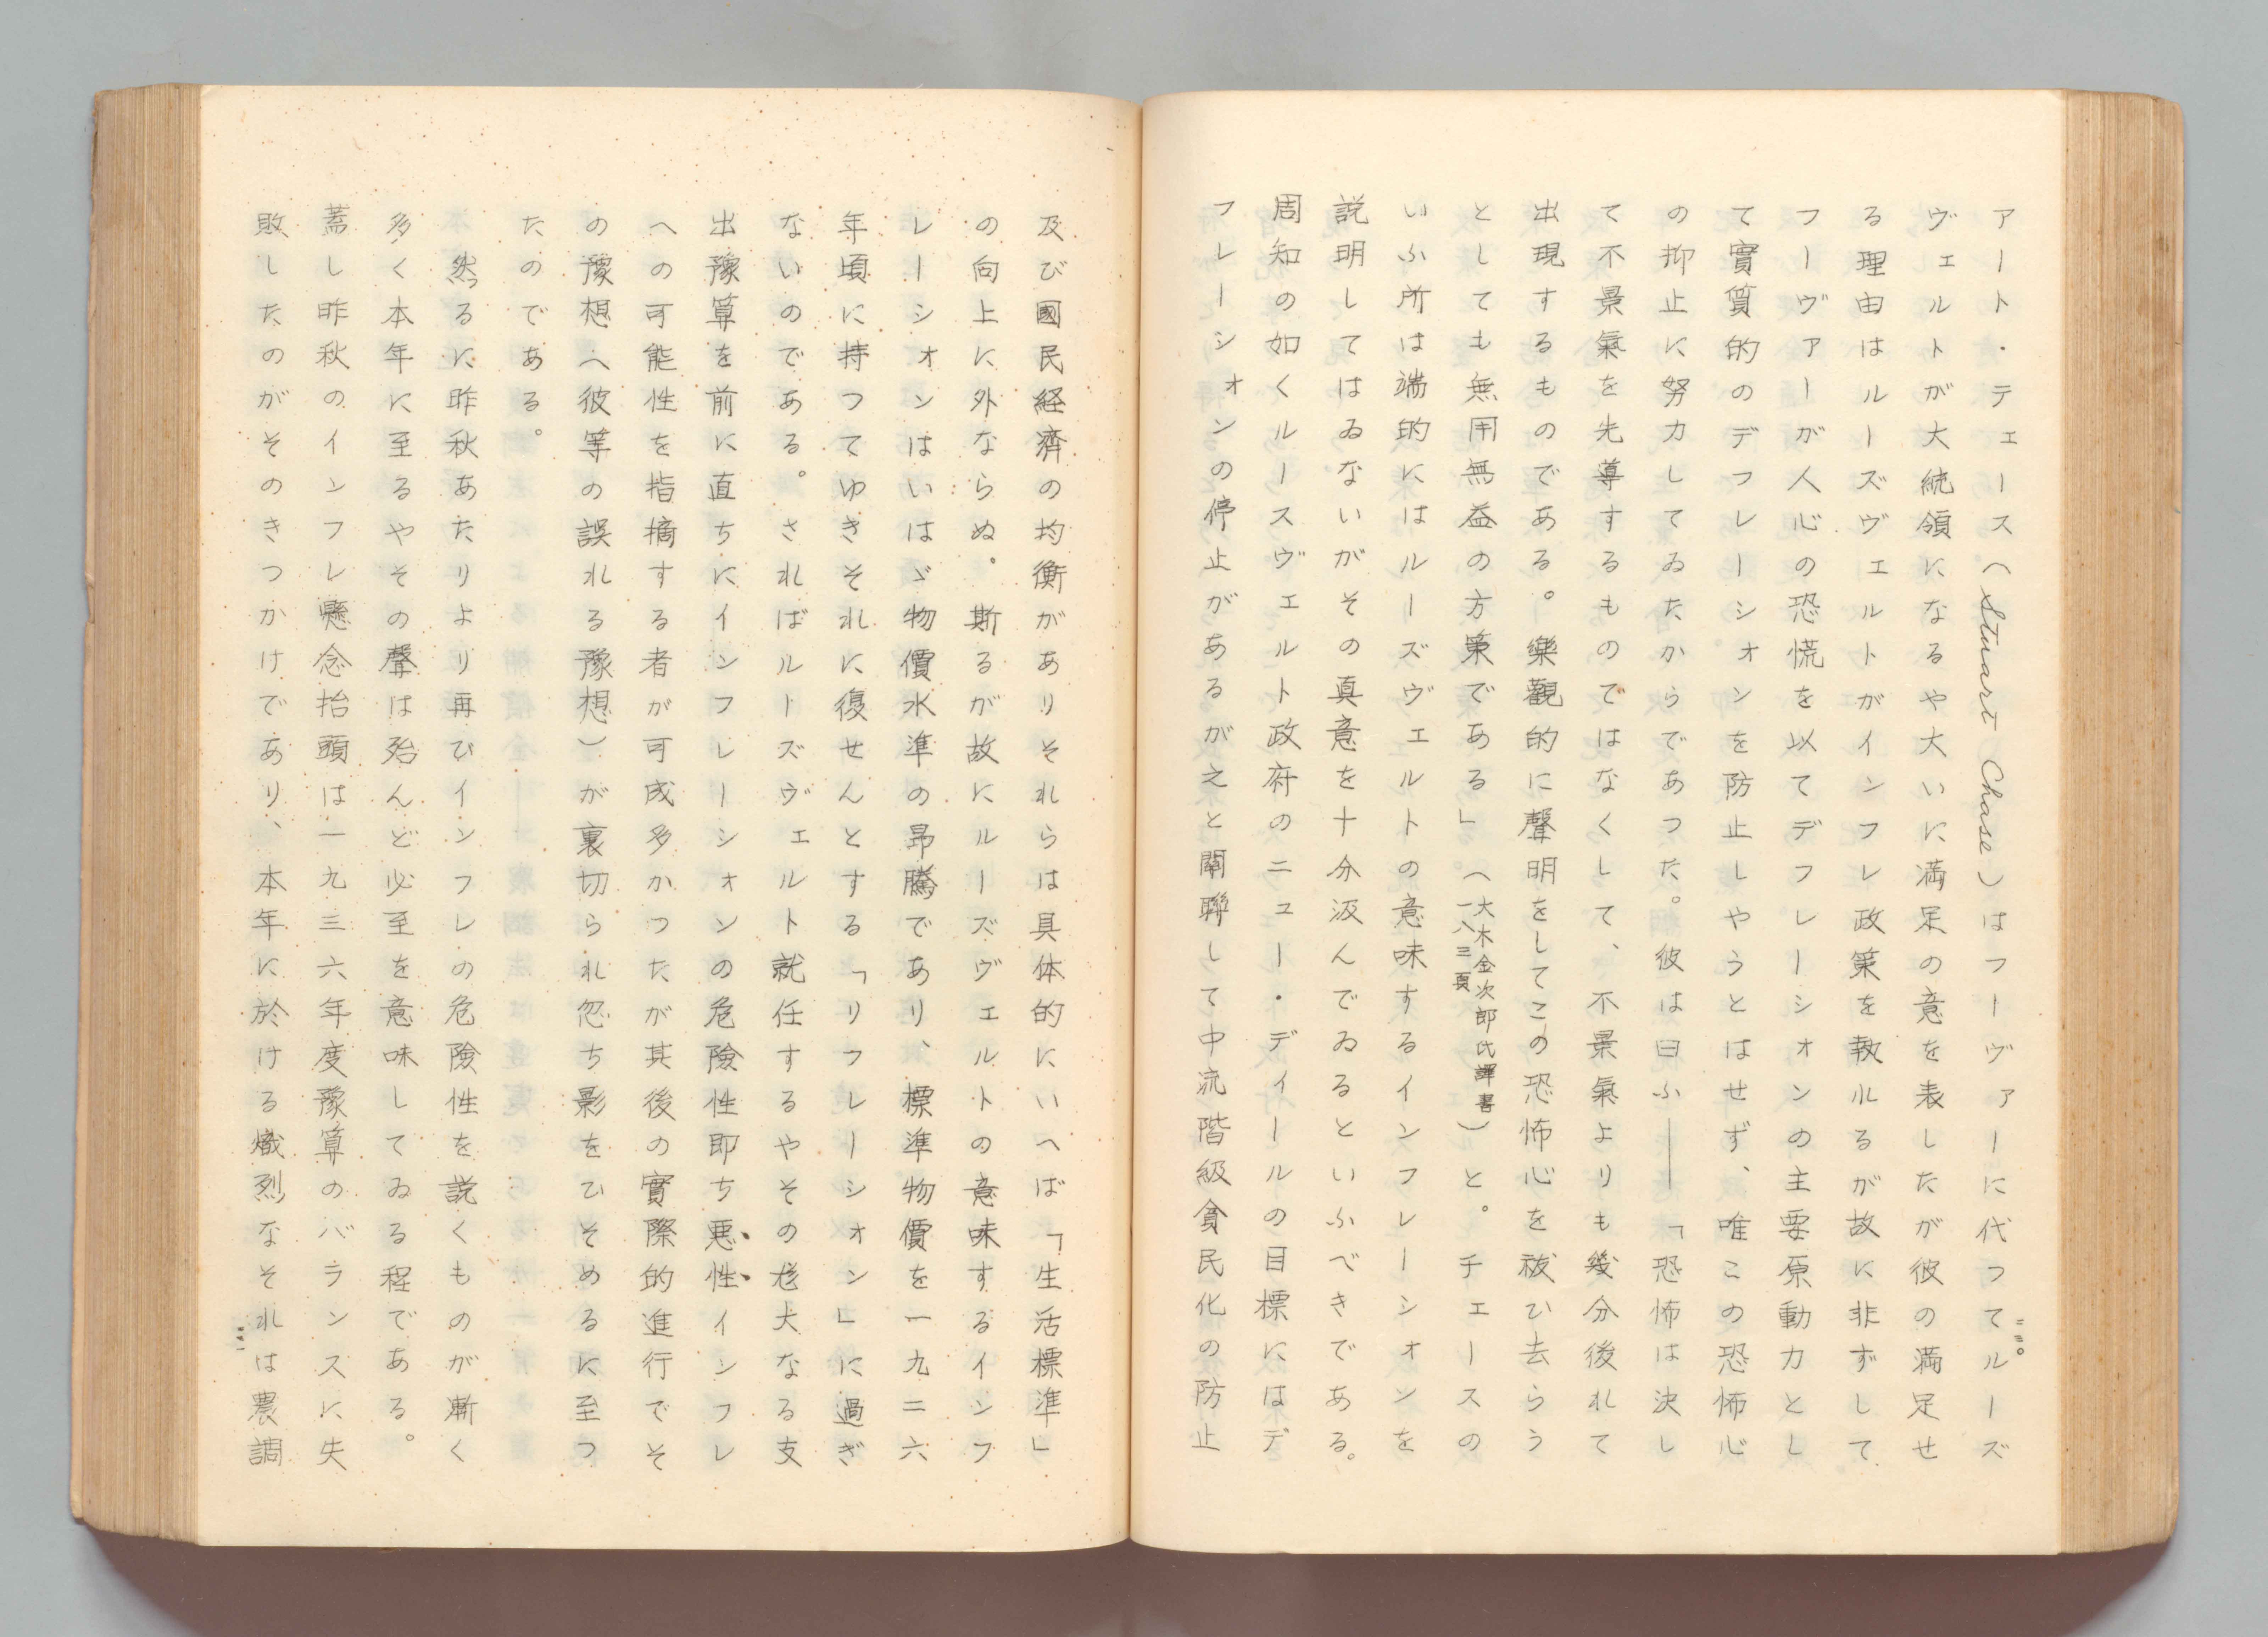 アート・チェース（Stuart Chase）はフーヴァーに代つてルーズ
ヴェルトが大統領になるや大いに満足の意を表したが彼の満足せ
る理由はルーズヴェルトがインフレ政策を執れるが故に非ずして
フーヴァーが人心の恐慌を以てデフレーシォンの主要原動力とし
て實質的のデフレーシォンを防止しやうとはせず、唯この恐怖心
の抑止に努力してゐたからであつた。彼は曰ふ――「恐怖は決し
て不景氣を先導するものではなくして、不景氣よりも幾分後れて
出現するものである。樂觀的に聲明をしてこの恐怖心を祓ひ去らう
としても無用無益の方策である」（大木金次郎氏譯書一八三頁）と。チェースの
いふ所は端的にはルーズヴェルトの意味するインフレーシォンを
説明してはゐないがその真意を十分汲んでゐるといふべきである。
周知の如くルースヴェルト政府のニュー・ディールの目標にはデ
フレーシォンの停止があるが之と關聯して中流階級貧民化の防止
及び國民経濟の均衡がありそれらは具体的にいへば「生活標準」
の向上に外ならぬ。斯るが故にルーズヴェルトの意味するインフ
レーシォンはいはゞ物價水準の昻騰であり、標準物價を一九二六
年頃に持つてゆきそれに復せんとする「リフレーシォン」に過ぎ
ないのである。さればルーズヴェルト就任するやその尨大なる支
出豫算を前に直ちにインフレーシォンの危險性即ち悪性インフレ
への可能性を指摘する者が可成多かつたが其後の實際的進行でそ
の豫想へ彼等の誤れる豫想）が裏切られ忽ち影をひそめるに至つ
たのである。
然るに昨秋あたりより再びインフレの危險性を説くものが漸く
多く本年に至るやその聲は殆んど必至を意味してゐる程である。
蓋し昨秋のインフレ懸念抬頭は一九三六年度豫算のバランスに失
敗したのがそのきつかけであり、本年に於ける熾烈なそれは農調